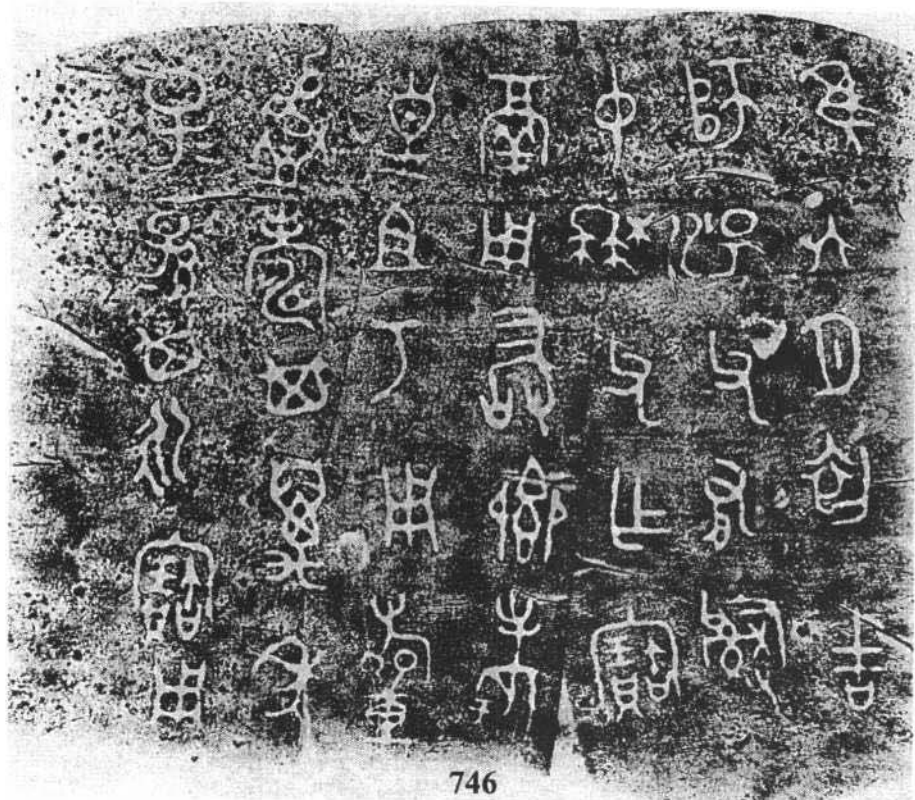 隹六月初吉
師湯父有𤔲
中枏父乍寶
鬲用敢鄉孝
皇且丂用𣄨
眉壽其萬年
子=孫=其永寶用
746